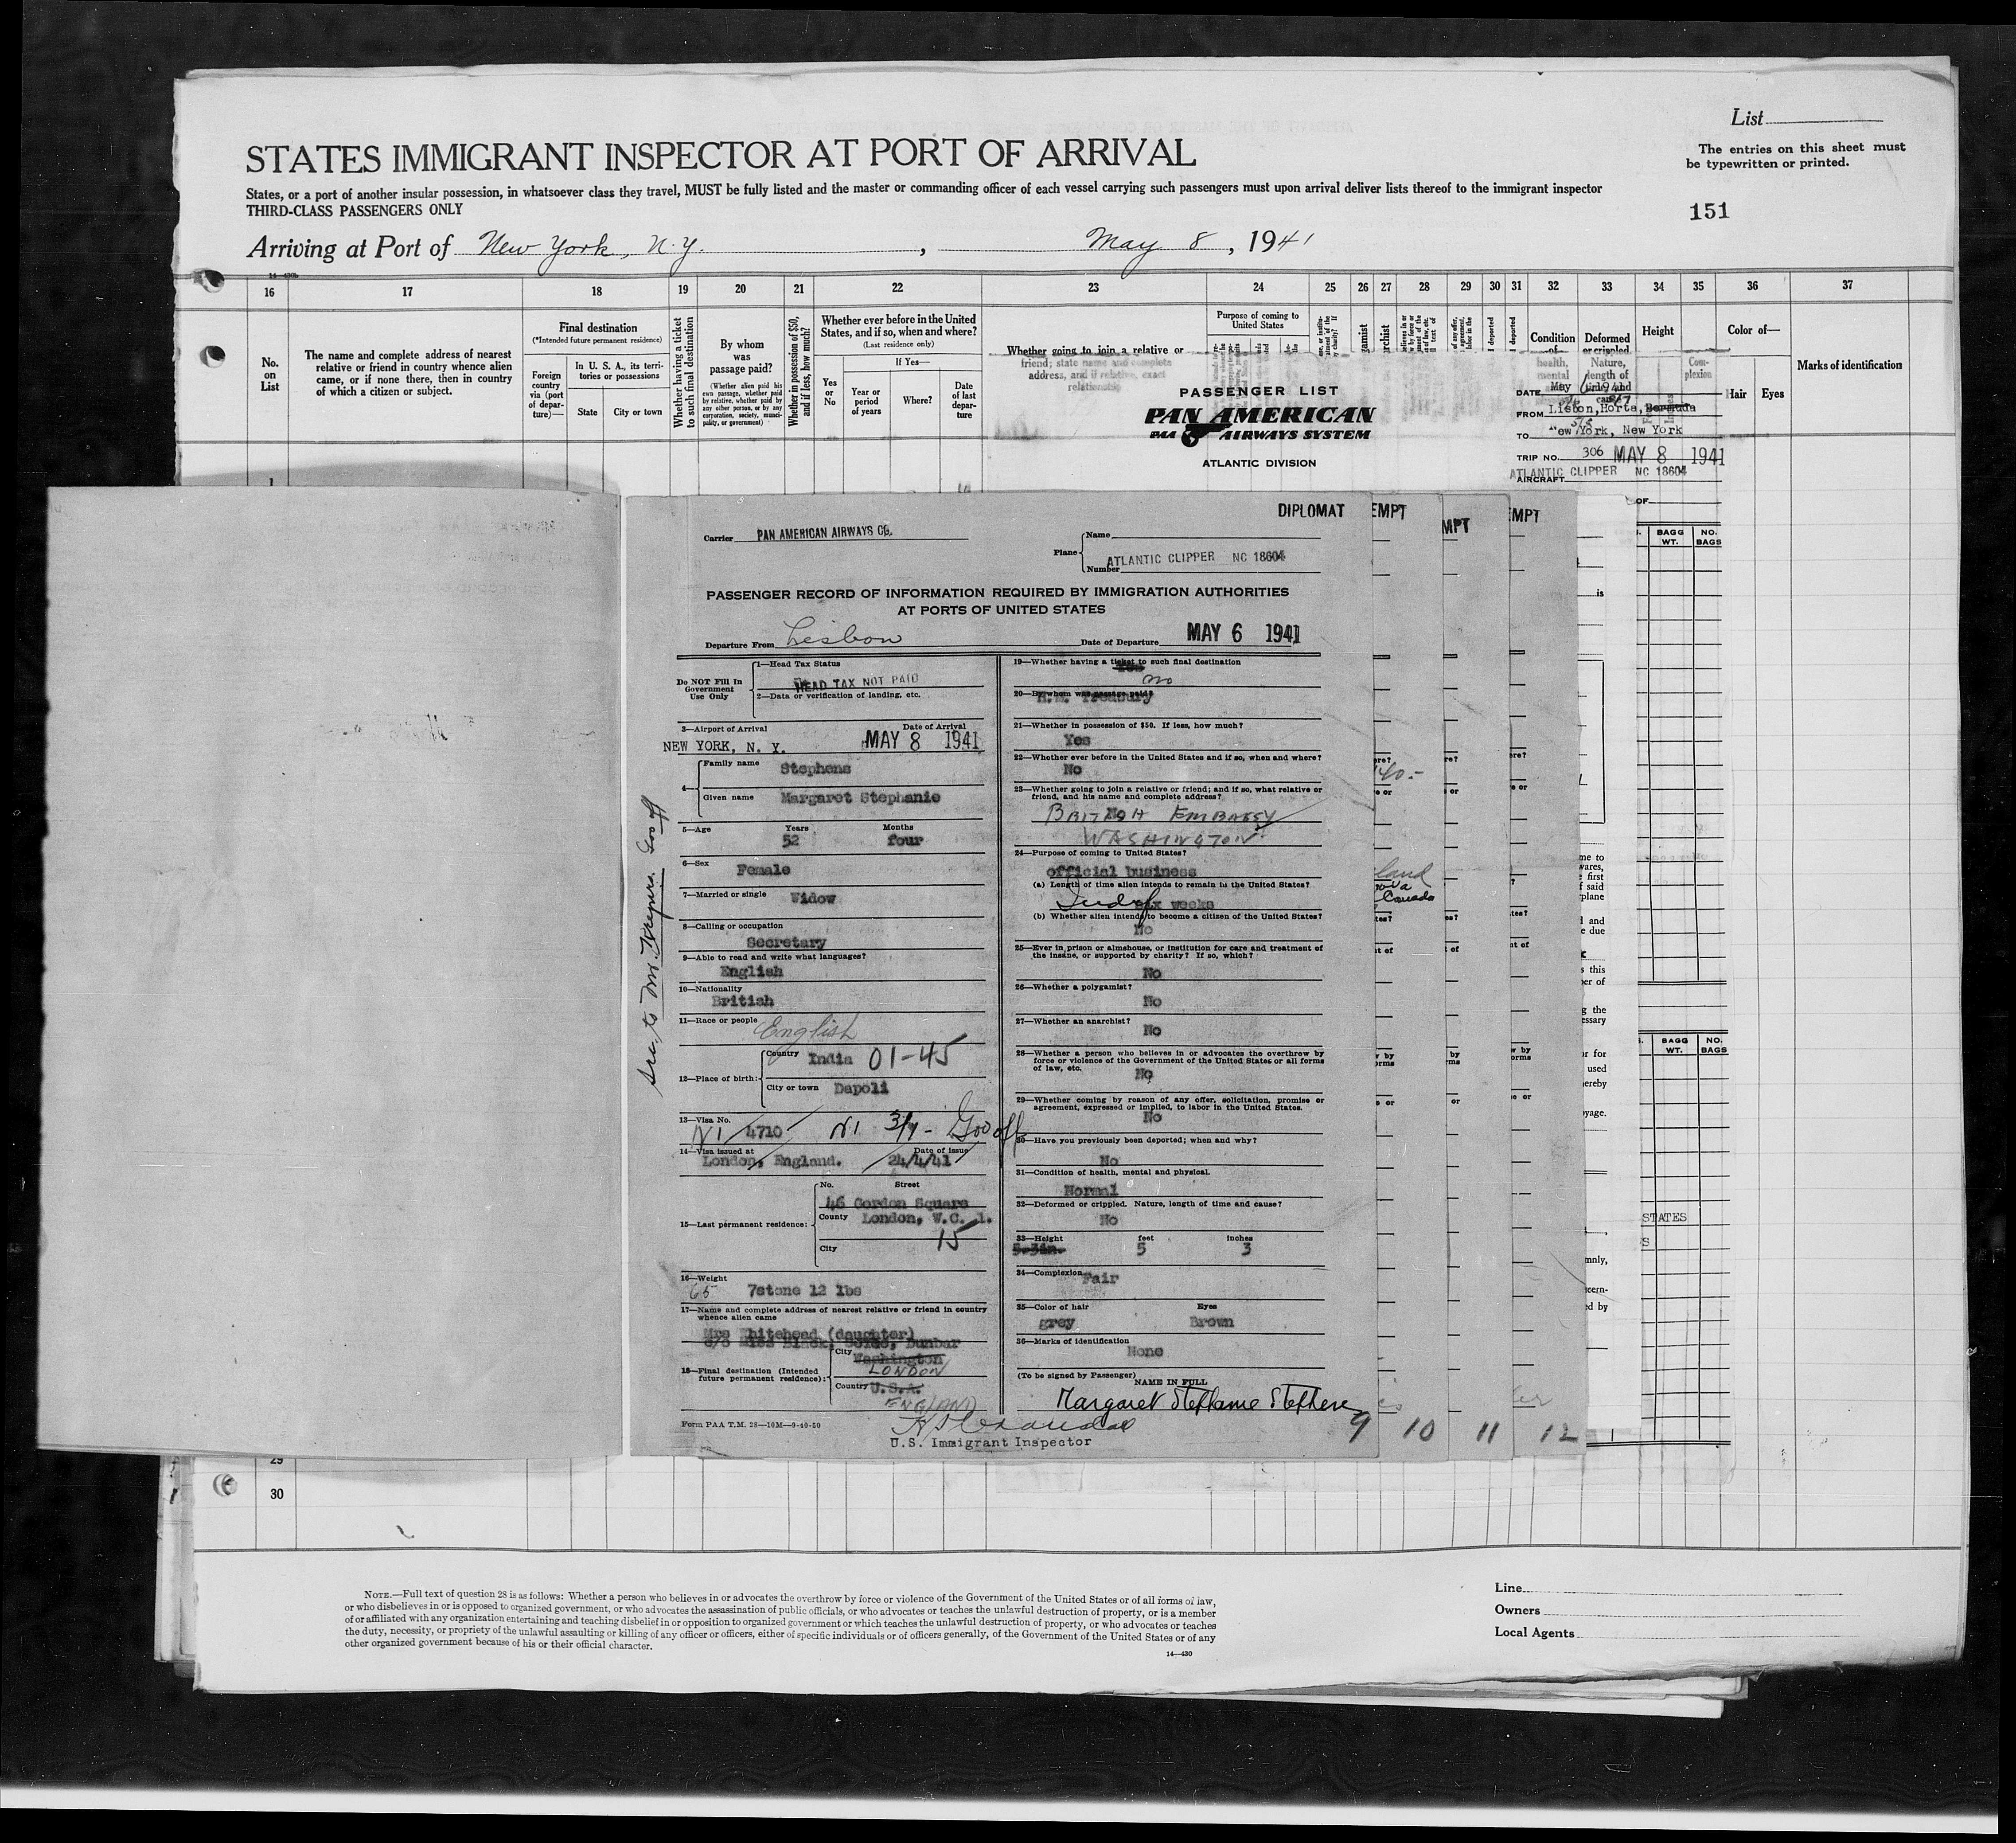 List
The entries on this sheet must
be typewritten or printed.
STATES IMMIGRANT INSPECTOR AT PORT OF ARRIVAL
States, or a port of another insular possession, in whatsoever class they travel, MUST be fully listed and the master or commanding officer of each vessel carrying such passengers must upon arrival deliver lists thereof to the immigrant inspector
THIRD-CLASS PASSENGERS ONLY
151
Arriving at Port of New York, N.Y. , May 8, 1941
16 17 18 19 20 21 22 23 24 25 26 27 28 29 30 31 32 33 34 35 36 37
No. on List
The name and complete address of nearest
relative or friend in country whence alien
came, or if none there, then in country
of which a citizen or subject.
Final destination
(*Intended future permanent residence)
Foreign country via (port of departure)—
In U. S. A., its territories or possessions
State
City or town
Whether having a ticket to such final destination
By whom was passage paid?
(Whether alien paid his own passage, whether paid by relative, whether paid by any other person, or by any corporation, society, municipality, or government)
Whether in possession of $50, and if less, how much?
Whether ever before in the United
States, and if so, when and where?
(Last residence only)
Yes or No
If Yes—
Year or period of years
Where?
Date of last departure
Whether going to join a relative or
friend; state name and complete
address, and if relative, exact
relationship
Purpose of coming to
United States
Condition of— health, mental
Deformed or crippled. Nature, length of
Height
Complexion
Color of—
Hair Eyes
Marks of identification
PASSENGER LIST
PAN AMERICAN
PAA AIRWAYS SYSTEM
ATLANTIC DIVISION
DATE May 6 1941
FROM Lisbon, Horta, Bermuda
TO New York, New York
TRIP NO. 306 MAY 8 1941
AIRCRAFT ATLANTIC CLIPPER NC 18604
OF
BAGG WT. NO. BAGS
1
DIPLOMAT
EMPT
MPT
EMPT
Carrier PAN AMERICAN AIRWAYS CO.
Plane Name
Number ATLANTIC CLIPPER NC 18604
PASSENGER RECORD OF INFORMATION REQUIRED BY IMMIGRATION AUTHORITIES
AT PORTS OF UNITED STATES
Departure From Lisbon Date of Departure MAY 6 1941
Do NOT Fill In Government Use Only
1—Head Tax Status
HEAD TAX NOT PAID
2—Data or verification of landing, etc.
3—Airport of Arrival Date of Arrival
NEW YORK, N. Y. MAY 8 1941
4— Family name Stephens
Given name Margaret Stephanie
5—Age Years Months
52 four
6—Sex
Female
7—Married or single
Widow
8—Calling or occupation
Secretary
9—Able to read and write what languages?
English
10—Nationality
British
11—Race or people English
12—Place of birth: Country India 01-45
City or town Dapoli
13—Visa No.
N1 4710 N1 3/7 - Gov off
14—Visa issued at Date of issue
London, England. 24/4/41
15—Last permanent residence: No. Street
46 Gordon Square
County London, W.C. 1.
City 15
16—Weight
65 7stone 12 lbs
17—Name and complete address of nearest relative or friend in country
whence alien came
Mrs Whitehead (daughter)
c/o Miss Black, Dunbar
18—Final destination (Intended
future permanent residence): City Washington
LONDON
Country U.S.A.
ENGLAND
Form PAA T.M. 28—10M—9-40-50
U.S. Immigrant Inspector
19—Whether having a ticket to such final destination
Yes
No
20—By whom was passage paid?
H.M. Treasury
21—Whether in possession of $50. If less, how much?
Yes
22—Whether ever before in the United States and if so, when and where?
No
23—Whether going to join a relative or friend; and if so, what relative or
friend, and his name and complete address?
No
BRITISH EMBASSY
WASHINGTON
24—Purpose of coming to United States?
official business
(a) Length of time alien intends to remain in the United States?
Indef six weeks
(b) Whether alien intends to become a citizen of the United States?
No
25—Ever in prison or almshouse, or institution for care and treatment of
the insane, or supported by charity? If so, which?
No
26—Whether a polygamist?
No
27—Whether an anarchist?
No
28—Whether a person who believes in or advocates the overthrow by
force or violence of the Government of the United States or all forms
of law, etc.
No
29—Whether coming by reason of any offer, solicitation, promise or
agreement, expressed or implied, to labor in the United States.
No
30—Have you previously been deported; when and why?
No
31—Condition of health, mental and physical.
Normal
32—Deformed or crippled. Nature, length of time and cause?
No
33—Height feet inches
5.3in. 5 3
34—Complexion
Fair
35—Color of hair Eyes
grey Brown
36—Marks of identification
None
(To be signed by Passenger)
NAME IN FULL
Margaret Stephanie Stephens
9 10 11 12
Canada
BAGG WT. NO. BAGS
STATES
29
30
NOTE.—Full text of question 28 is as follows: Whether a person who believes in or advocates the overthrow by force or violence of the Government of the United States or of all forms of law,
or who disbelieves in or is opposed to organized government, or who advocates the assassination of public officials, or who advocates or teaches the unlawful destruction of property, or is a member
of or affiliated with any organization entertaining and teaching disbelief in or opposition to organized government or which teaches the unlawful destruction of property, or who advocates or teaches
the duty, necessity, or propriety of the unlawful assaulting or killing of any officer or officers, either of specific individuals or of officers generally, of the Government of the United States or of any
other organized government because of his or their official character.
14—430
Line
Owners
Local Agents